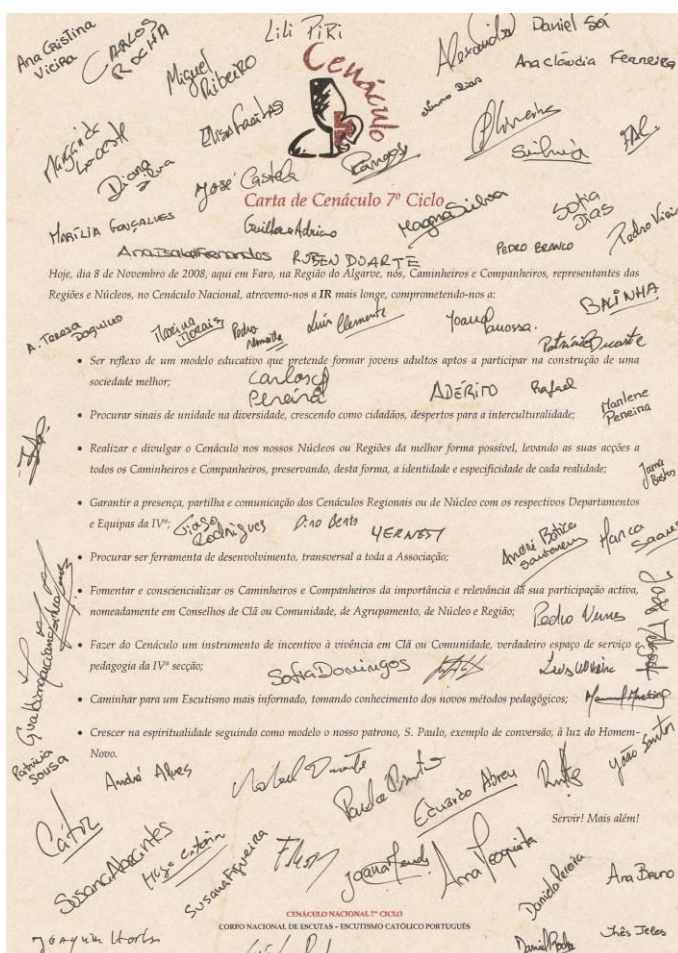 Lili Piri
Daniel Sá
Ana Cristina
Vieira
CARLOS
ROCHA
Alexandra
Ana Cláudia Ferreira
Miguel
Ribeiro
Cenáculo
Nuno Dias
Elisa Freitas
Oliveira
Margarida
Diana
Silva
José Castela
Rangos
Silvia
Carta de Cenáculo 7º Ciclo
Magna Silva
Sofia
Dias
MARÍLIA GONÇALVES
Guilherme Adriano
PEDRO BRANCO
Pedro Vieira
Ana Isabel Fernandes
RUBEN DUARTE
Hoje, dia 8 de Novembro de 2008, aqui em Faro, na Região do Algarve, nós, Caminheiros e Companheiros, representantes das
Regiões e Núcleos, no Cenáculo Nacional, atrevemo-nos a IR mais longe, comprometendo-nos a:
BAINHA
A. Teresa
Marina
Morais
Pedro
Luís Clemente
Joana
Patrícia Duarte
• Ser reflexo de um modelo educativo que pretende formar jovens adultos aptos a participar na construção de uma
sociedade melhor;
Carlos
Pereira
ADÉRITO
Rafael
Marlene
Pereira
• Procurar sinais de unidade na diversidade, crescendo como cidadãos, despertos para a interculturalidade;
• Realizar e divulgar o Cenáculo nos nossos Núcleos ou Regiões da melhor forma possível, levando as suas acções a
todos os Caminheiros e Companheiros, preservando, desta forma, a identidade e especificidade de cada realidade;
• Garantir a presença, partilha e comunicação dos Cenáculos Regionais ou de Núcleo com os respectivos Departamentos
e Equipas da IVª;
Tiago
Rodrigues
Dino Bento
YERNEST
André Botica
• Procurar ser ferramenta de desenvolvimento, transversal a toda a Associação;
• Fomentar e consciencializar os Caminheiros e Companheiros da importância e relevância da sua participação activa,
nomeadamente em Conselhos de Clã ou Comunidade, de Agrupamento, de Núcleo e Região;
Pedro Nunes
• Fazer do Cenáculo um instrumento de incentivo à vivência em Clã ou Comunidade, verdadeiro espaço de serviço e
pedagogia da IVª secção;
Sofia Domingos
Luis Oliveira
• Caminhar para um Escutismo mais informado, tomando conhecimento dos novos métodos pedagógicos;
Manuel Martins
• Crescer na espiritualidade seguindo como modelo o nosso patrono, S. Paulo, exemplo de conversão, à luz do Homem-
Novo.
Patrícia
Sousa
André Alves
Isabel Duarte
Eduardo Abreu
João Santos
Servir! Mais além!
Cátia
Susana Abrantes
Hugo
Susana Figueira
Joana Mendy
Ana Mesquita
Daniela Pereira
Ana Bruno
CENÁCULO NACIONAL 7º CICLO
CORPO NACIONAL DE ESCUTAS – ESCUTISMO CATÓLICO PORTUGUÊS
Joaquim
Daniel Rocha
Inês Teles